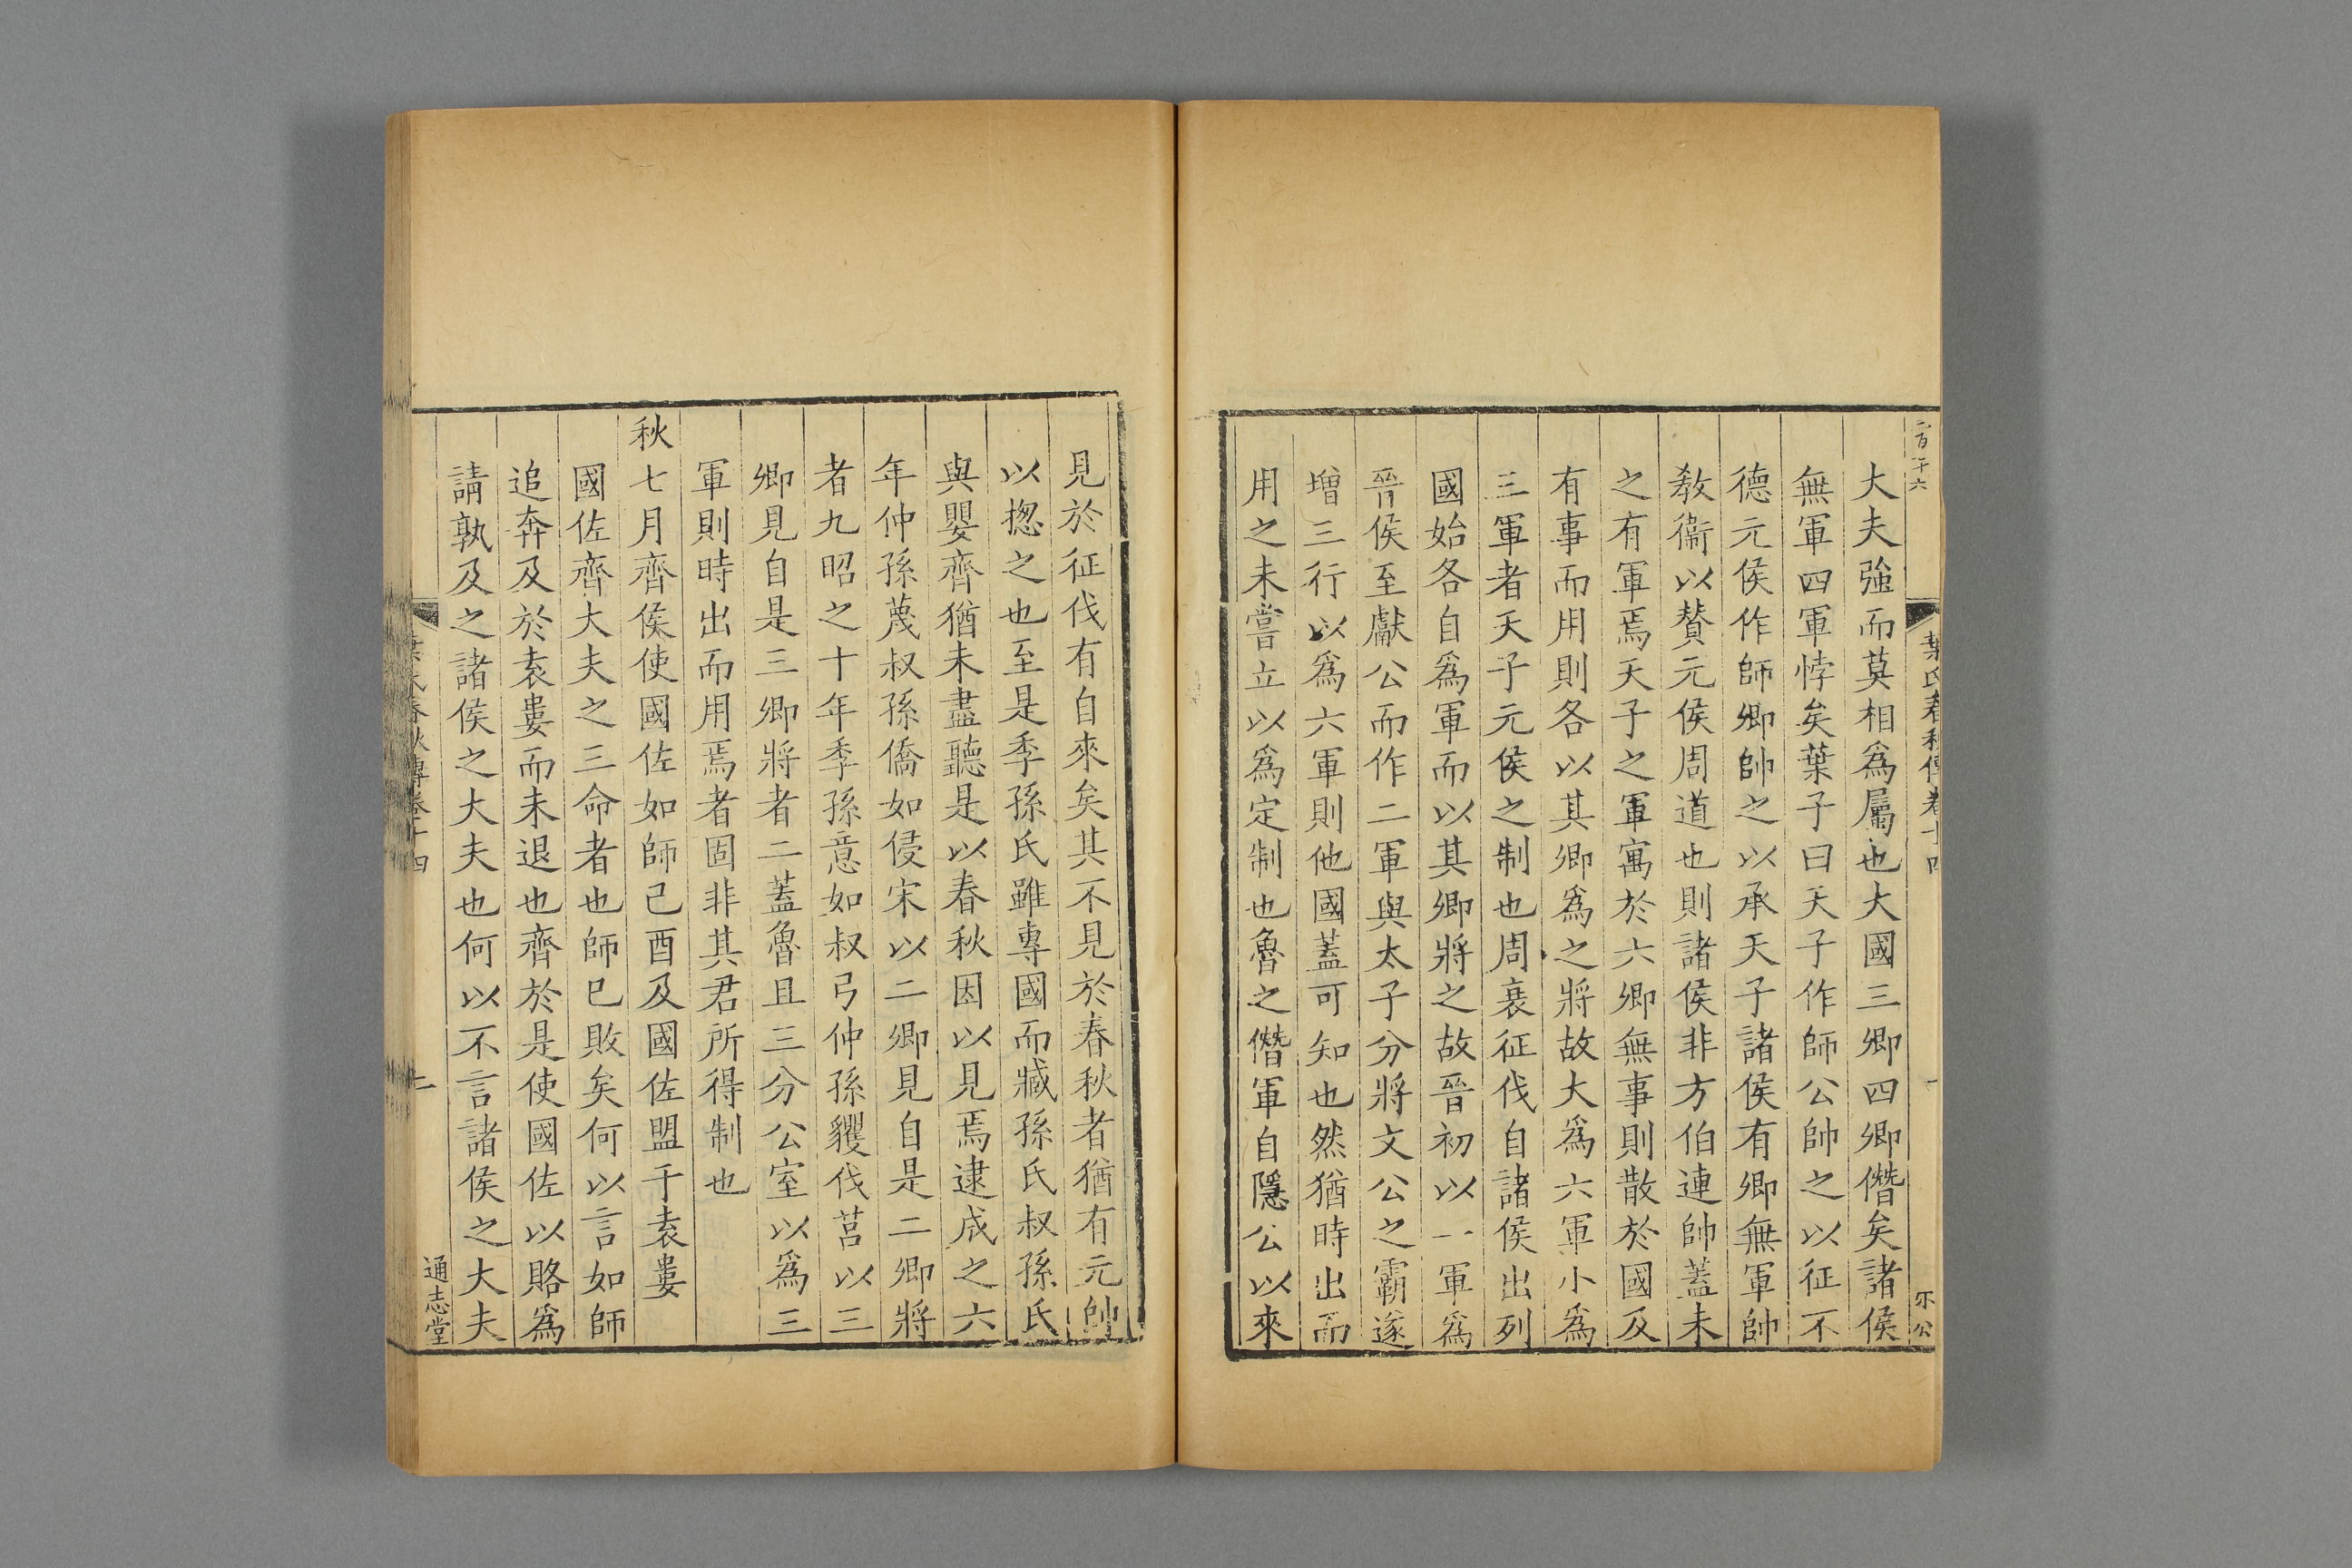 大夫強而莫相爲屬也大國三卿四卿僭矣諸侯
無軍四軍悖矣葉子曰天子作師公帥之以征不
德元侯作師卿帥之以承天子諸侯有卿無軍帥
敎衞以賛元侯周道也則諸侯非方伯連帥蓋未
之有軍焉天子之軍寓於六卿無事則散於國及
有事而用則各以其卿爲之將故大爲六軍小爲
三軍者天子元侯之制也周衰征伐自諸侯出列
國始各自爲軍而以其卿將之故晉初以一軍爲
晉侯至獻公而作二軍與太子分將文公之霸遂
增三行以爲六軍則他國蓋可知也然猶時出而
用之未嘗立以爲定制也魯之僭軍自隱公以來
見於征伐有自來矣其不見於春秋者猶有元帥
以揔之也至是季孫氏雖專國而臧孫氏叔孫氏
與嬰齊猶未盡聽是以春秋因以見焉逮成之六
年仲孫蔑叔孫僑如侵宋以二卿見自是二卿將
者九昭之十年季孫意如叔弓仲孫貜伐莒以三
卿見自是三卿將者二蓋魯且三分公室以爲三
軍則時出而用焉者固非其君所得制也
秋七月齊侯使國佐如師己酉及國佐盟于袁婁
國佐齊大夫之三命者也師已敗矣何以言如師
追奔及於袁婁而未退也齊於是使國佐以賂爲
請孰及之諸侯之大夫也何以不言諸侯之大夫
通志堂